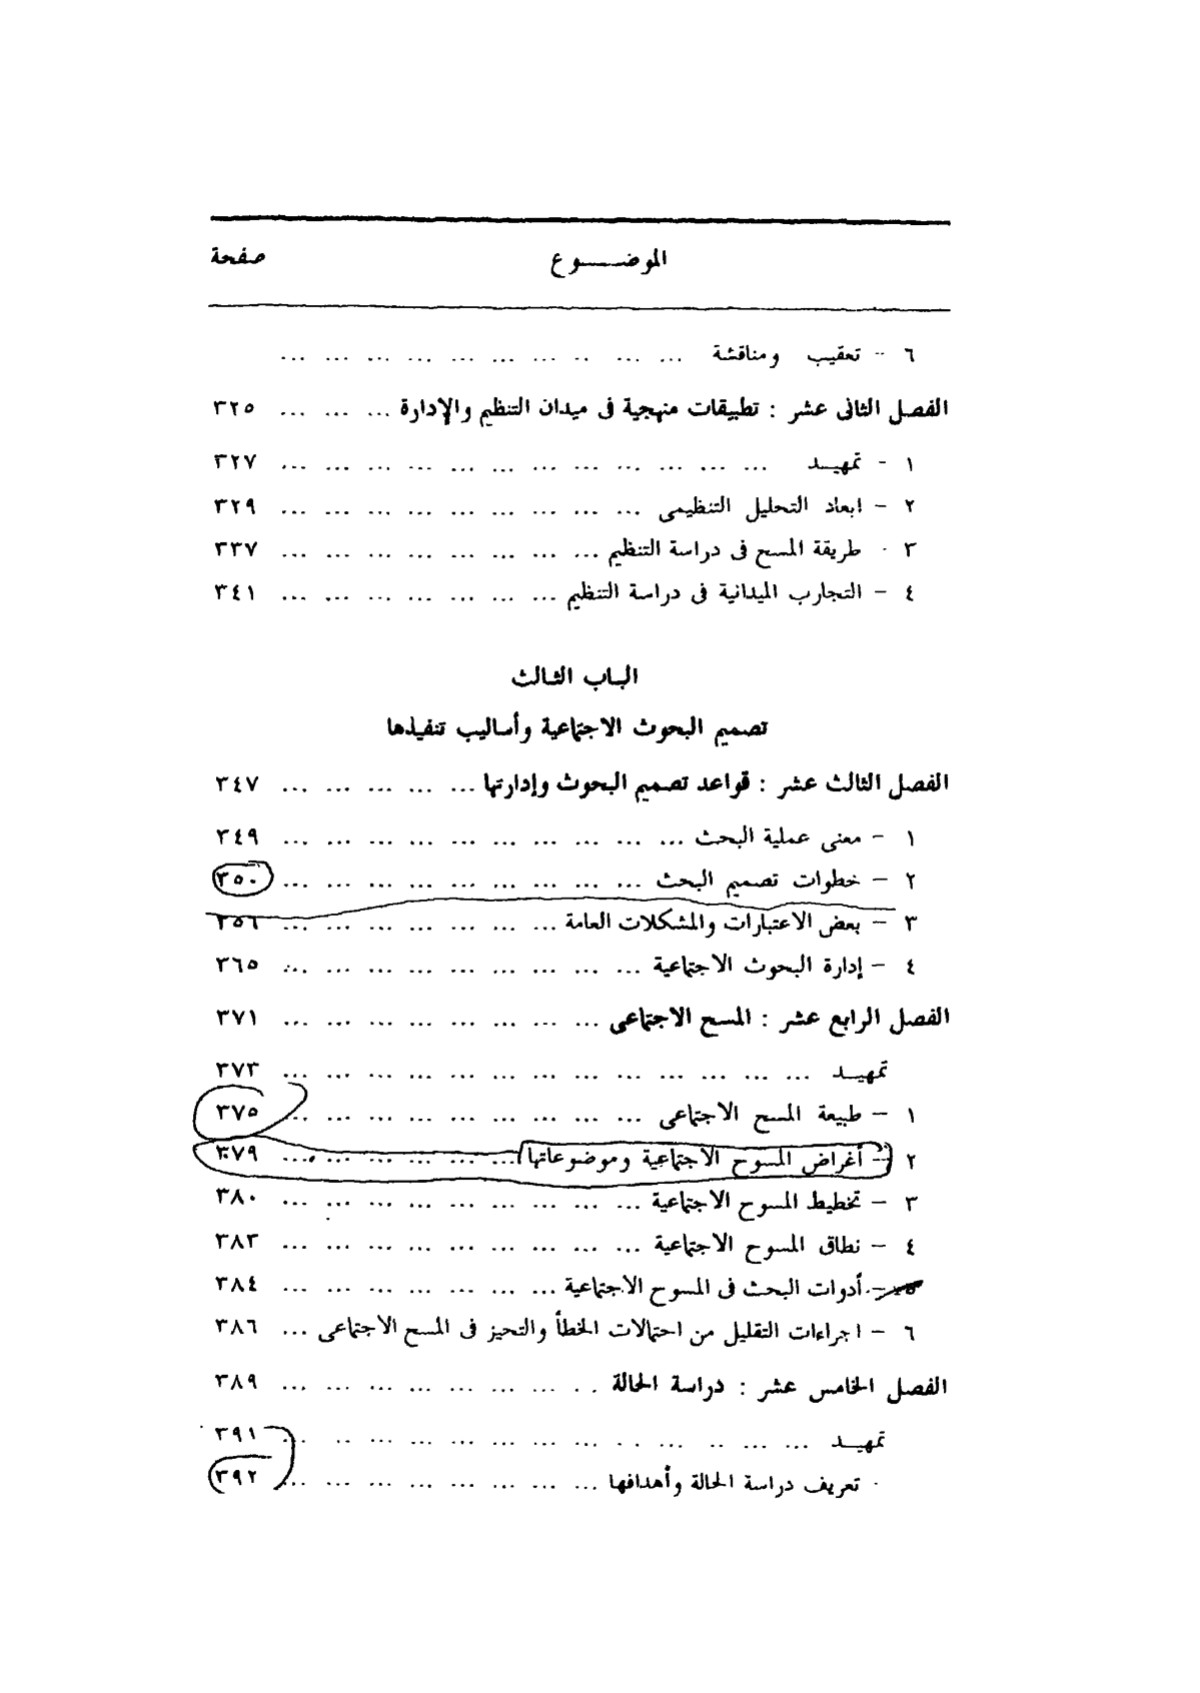 الموضـــوع صفحة
٦ - تعقيب ومناقشة ... ... ... ... ... ... ... ... ... ...
الفصل الثانى عشر : تطبيقات منهجية فى ميدان التنظيم والإدارة ... ... ... ٣٢٥
١ - تمهيـد ... ... ... ... ... ... ... ... ... ... ... ... ٣٢٧
٢ - ابعاد التحليل التنظيمى ... ... ... ... ... ... ... ... ... ٣٢٩
٣ - طريقة المسح فى دراسة التنظيم ... ... ... ... ... ... ... ... ٣٣٧
٤ - التجارب الميدانية فى دراسة التنظيم ... ... ... ... ... ... ... ٣٤١
الباب الثالث
تصميم البحوث الاجتماعية وأساليب تنفيذها
الفصل الثالث عشر : قواعد تصميم البحوث وإدارتها ... ... ... ... ... ٣٤٧
١ - معنى عملية البحث ... ... ... ... ... ... ... ... ... ... ٣٤٩
٢ - خطوات تصميم البحث ... ... ... ... ... ... ... ... ... ٣٥٠
٣ - بعض الاعتبارات والمشكلات العامة ... ... ... ... ... ... ... ٣٥٦
٤ - إدارة البحوث الاجتماعية ... ... ... ... ... ... ... ... ... ٣٦٥
الفصل الرابع عشر : المسح الاجتماعى ... ... ... ... ... ... ... ... ٣٧١
تمهيـد ... ... ... ... ... ... ... ... ... ... ... ... ... ٣٧٣
١ - طبيعة المسح الاجتماعى ... ... ... ... ... ... ... ... ... ٣٧٥
٢ - أغراض المسوح الاجتماعية وموضوعاتها ... ... ... ... ... ... ٣٧٩
٣ - تخطيط المسوح الاجتماعية ... ... ... ... ... ... ... ... ... ٣٨٠
٤ - نطاق المسوح الاجتماعية ... ... ... ... ... ... ... ... ... ٣٨٣
٥ - أدوات البحث فى المسوح الاجتماعية ... ... ... ... ... ... ... ٣٨٤
٦ - اجراءات التقليل من احتمالات الخطأ والتحيز فى المسح الاجتماعى ... ٣٨٦
الفصل الخامس عشر : دراسة الحالة ... ... ... ... ... ... ... ... ٣٨٩
تمهيـد ... ... ... ... ... ... ... ... ... ... ... ... ... ٣٩١
تعريف دراسة الحالة وأهدافها ... ... ... ... ... ... ... ... ٣٩٢